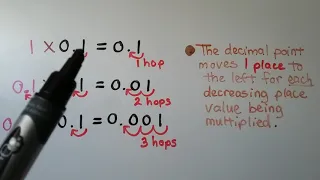 1 x 0.1 = 0.1
1 hop
0.1 0.1 = 0.01
2 hops
0. 0.1 = 0.001
3 hops
The decimal point
moves 1 place to
the left for each
decreasing place
value being
multiplied.